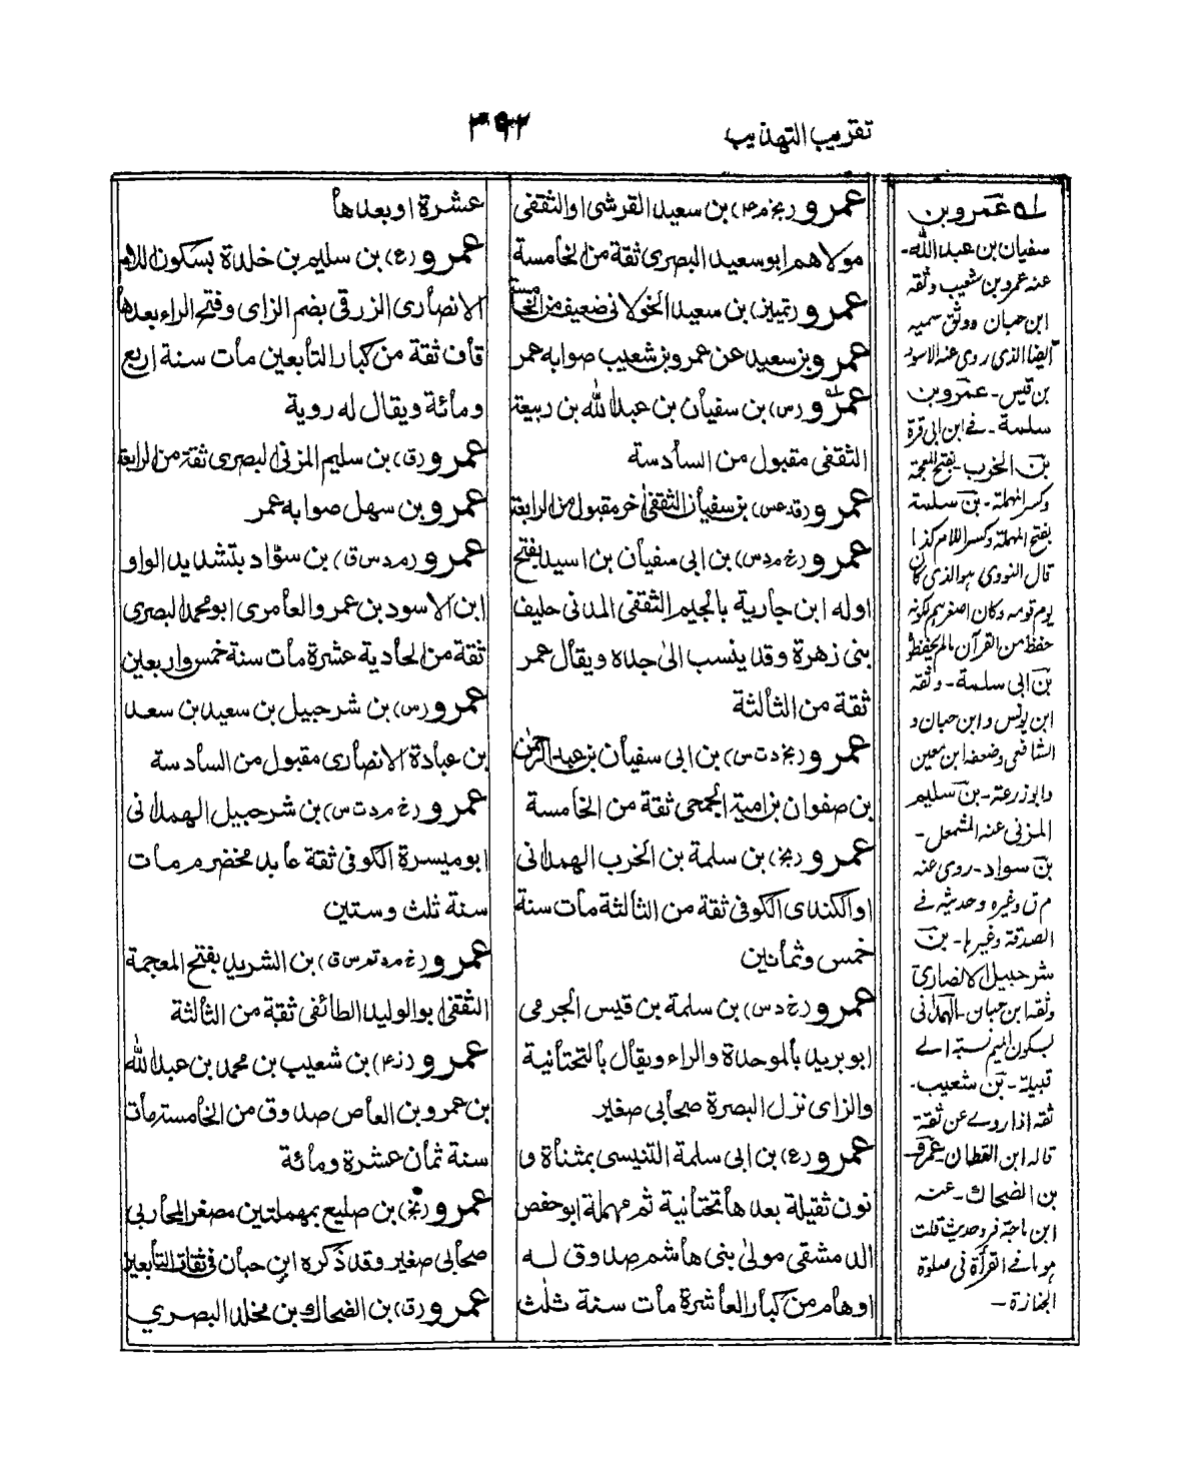 تقريب التهذيب
٣٩٢
عمرو (بخ م ٤) بن سعيد القرشى او الثقفى
مولاهم ابو سعيد البصرى ثقة من الخامسة
عمرو (تمييز) بن سعيد الخولانى ضعيف من الخامسة
عمرو بن سعيد عن عمرو بن شعيب صوابه عمر
عمرو (س) بن سفيان بن عبد الله بن ربيعة
الثقفى مقبول من السادسة
عمرو (قد عس) بن سفيان الثقفى اخر مقبول من الرابعة
عمرو (خ م د س) بن ابى سفيان بن اسيد بفتح
اوله ابن جارية بالجيم الثقفى المدنى حليف
بنى زهرة وقد ينسب الى جده ويقال عمر
ثقة من الثالثة
عمرو (بخ د ت س) بن ابى سفيان بن عبد الرحمن
بن صفوان بن امية الجمحى ثقة من الخامسة
عمرو (بخ) بن سلمة بن الخرب الهمدانى
او الكندى الكوفى ثقة من الثالثة مات سنة
خمس وثمانين
عمرو (خ د س) بن سلمة بن قيس الجرمى
ابو بريد بالموحدة والراء ويقال بالتحتانية
والزاى نزل البصرة صحابى صغير
عمرو (ع) بن ابى سلمة التنيسى بمثناة و
نون ثقيلة بعدها تحتانية ثم مهملة ابو حفص
الدمشقى مولى بنى هاشم صدوق له
اوهام من كبار العاشرة مات سنة ثلث
عشرة او بعدها
عمرو (ع) بن سليم بن خلدة بسكون اللام
الانصارى الزرقى بضم الزاى وفتح الراء بعدها
قاف ثقة من كبار التابعين مات سنة اربع
ومائة ويقال له روية
عمرو (ق) بن سليم المزنى البصرى ثقة من الرابعة
عمرو بن سهل صوابه عمر
عمرو (م د س ق) بن سوّاد بتشديد الواو
ابن الاسود بن عمرو العامرى ابو محمد البصرى
ثقة من الحادية عشرة مات سنة خمس واربعين
عمرو (س) بن شرحبيل بن سعيد بن سعد
بن عبادة الانصارى مقبول من السادسة
عمرو (خ م د ت س) بن شرحبيل الهمدانى
ابو ميسرة الكوفى ثقة عابد مخضرم مات
سنة ثلث وستين
عمرو (خ م د تم س ق) بن الشريد بفتح المعجمة
الثقفى ابو الوليد الطائفى ثقة من الثالثة
عمرو (ز ٤) بن شعيب بن محمد بن عبد الله
بن عمرو بن العاص صدوق من الخامسة مات
سنة ثمان عشرة ومائة
عمرو (بخ) بن صليع بمهملتين مصغر المحاربى
صحابى صغير وقد ذكره ابن حبان فى ثقات التابعين
عمرو (ق) بن الضحاك بن مخلد البصري
له عمرو بن
سفيان بن عبد الله-
عنه عمرو بن شعيب وثقه
ابن حبان ووثق سميه
ايضا الذى روى عنه الاسود
بن قيس- عمرو بن
سلمة- فى ابن ابى قرة
بن الخرب- بفتح المعجمة
وكسر المهملة- بن سلمة
بفتح المهملة وكسر اللام كذا
قال النووى هو الذى كان
يوم قومه وكان اصغرهم لكونه
حفظ من القرآن مالم يحفظوا
بن ابى سلمة- وثقه
ابن يونس وابن حبان و
الشافعى وضعفه ابن معين
وابوزرعة- بن سليم
المزنى عنه المشمعل-
بن سواد- روى عنه
م ق وغيره وحديثه فى
الصدقة وغيرها- بن
شرحبيل الانصارى
وثقه ابن حبان- الهمدانى
بسكون الميم نسبة الى
قبيلة- بن شعيب-
ثقه اذا روى عن ثقة
قاله ابن القطان- عمرو
بن الضحاك- عنه
ابن ماجة فرد حديث قلت
هو فى القرأة فى صلوة
الجنازة-